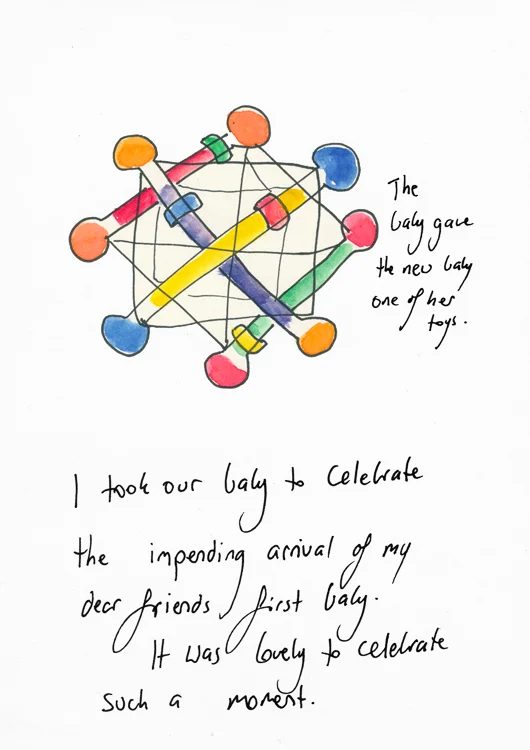 The
baby gave
the new baby
one of her
toys.
I took our baby to celebrate
the impending arrival of my
dear friends first baby.
It was lovely to celebrate
such a moment.